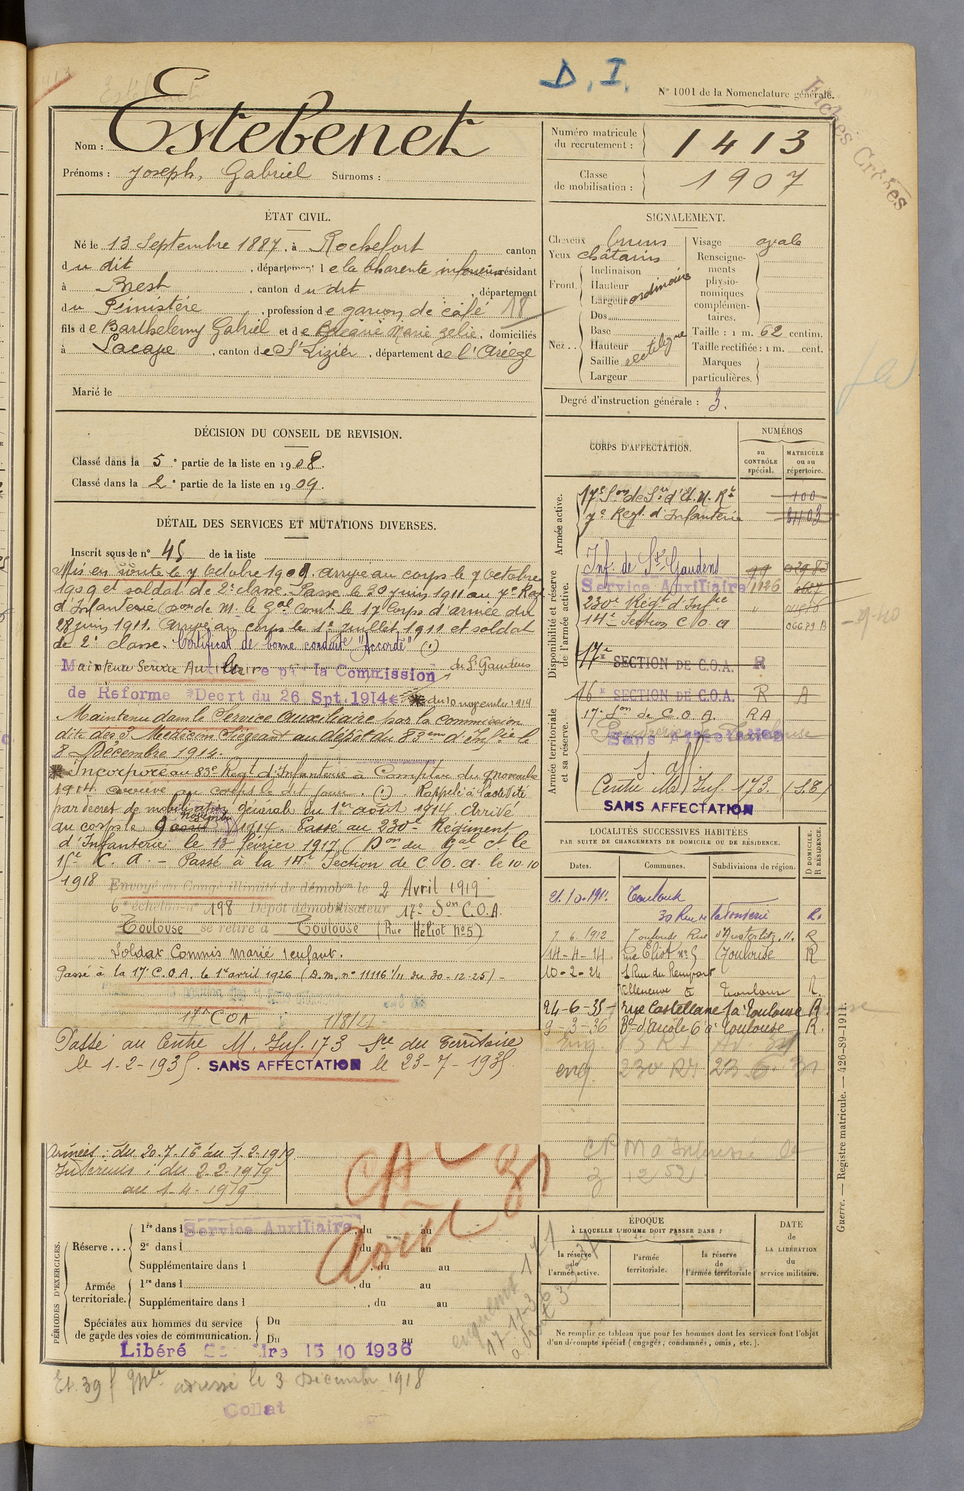 D. I.
N° 1001 de la Nomenclature générale.
Nom : Estebenet
Prénoms : Joseph, Gabriel Surnoms :
Numéro matricule du recrutement : 1413
Classe de mobilisation : 1907
ÉTAT CIVIL.
Né le 13 Septembre 1887, à Rochefort canton
du dit, département de la Charente inférieure résidant
à Brest, canton du dit département
du Finistère, profession de garçon de café 18
fils de Barthelemy Gabriel et de Marie Zelie, domiciliés
à Lacave, canton de St Lizier, département de l'Ariège
Marié le
SIGNALEMENT.
Cheveux bruns
Yeux châtains
Front. Inclinaison Hauteur Largeur ordinaire
Nez.. Dos Base Hauteur Saillie Largeur rectiligne
Visage ovale
Renseignements physionomiques complémentaires.
Taille : 1 m. 62 centim.
Taille rectifiée : 1 m. cent.
Marques particulières.
Degré d'instruction générale : 3.
DÉCISION DU CONSEIL DE REVISION.
Classé dans la 5e partie de la liste en 1908.
Classé dans la 2e partie de la liste en 1909.
DÉTAIL DES SERVICES ET MUTATIONS DIVERSES.
Inscrit sous le n° 45 de la liste
Mis en route le 7 Octobre 1909. arrivé au corps le 7 octobre
1909 et soldat de 2e classe. Passé le 20 juin 1911 au 7e Reg
d'Infanterie (Don de M. le Gal Comt le 17e Corps d'armée du
28 juin 1911. Arrivé au corps le 1er Juillet 1911 et soldat
de 2e classe. Certificat de bonne conduite "Accordé" (1)
Maintenu Service Auxiliaire par la Commission de St Gaudens
de Reforme Décrt du 26 Spt. 1914 du 10 novembre 1914
Maintenu dans le Service Auxiliaire par la Commission
dite des 3 Médecins siégeant au dépôt du 83eme d'Infie le
8 Décembre 1914.
Incorporé au 83e Regt d'Infanterie à compter du 9 novembre
1914. arrivé au corps le dit jour. (1). Rappelé à l'activité
par décret de mobilisation générale du 1er août 1914. Arrivé
au corps le 9 août novembre 1914. Passé au 230e Régiment
d'Infanterie le 13 février 1917 (Don du Gal Ct le
C. A. – Passé à la 14e Section de C.O.A. le 10.10
1918 Envoyé en Congé illimité de démobon le 2 Avril 1919
6e échelon n° 198 Dépôt démobilisateur 17e Son C.O.A.
Toulouse se retire à Toulouse (Rue Héliot n°5)
Soldat Commis marié 1 enfant.
Passé à la 17e C.O.A. le 1er avril 1926 (D.M. n° 11116 1/11 du 30-12-25)
17e COA
Passé au Centre M. Inf. 173 Sce du Territoire
le 1-2-1935. SANS AFFECTATION le 23-7-1935
Armées : du 20.7.16 au 1.2.1919
Intérieur : du 2.2.1919
au 1.4.1919
CORPS D'AFFECTATION.
NUMÉROS
au CONTRÔLE spécial.
MATRICULE ou au répertoire.
Armée active.
17e Son de Sres d'E. M. Rt 100
7e Regt. d'Infanterie
Disponibilité et réserve de l'armée active.
Inf. de St Gaudens
Service Auxiliaire 1126
230e Regt d'Infie
14e Section C O A
17e SECTION DE C.O.A. R
Armée territoriale et sa réserve.
16e SECTION DE C.O.A. R A
17e Son de C. O. A. RA
Sans Affectation
S. Aff.
Centre M. Inf. 173. (L8)
SANS AFFECTATION
LOCALITÉS SUCCESSIVES HABITÉES
PAR SUITE DE CHANGEMENTS DE DOMICILE OU DE RÉSIDENCE.
Dates. Communes. Subdivisions de région. D DOMICILE. R RÉSIDENCE.
21.10.1911. Toulouse
30 Rue R.
7.6.1912 Toulouse Rue d'Austerlitz, 11. R
14-4-14 Rue Eliot n°5 Toulouse R
10-2-24 1 Rue du Rempart
Villeneuve Toulouse R.
24-6-35 rue Castellane à Toulouse R
9-3-36 Bd d'Arcole 6 à Toulouse R.
eng. 230 RI
CA
Août
PÉRIODES D'EXERCICES.
Réserve... 1re dans l Service Auxiliaire, du au
2e dans l, du au
Supplémentaire dans l, du au
Armée territoriale. 1re dans l, du au
Supplémentaire dans l, du au
Spéciales aux hommes du service de garde des voies de communication. Du au
Du au
Libéré 15 10 1936
ÉPOQUE À LAQUELLE L'HOMME DOIT PASSER DANS :
la réserve de l'armée active.
l'armée territoriale.
la réserve de l'armée territoriale
DATE de LA LIBÉRATION du service militaire.
Ne remplir ce tableau que pour les hommes dont les services font l'objet
d'un décompte spécial (engagés, condamnés, omis, etc.).
adressé le 3 Décembre 1918
Collat
Guerre. — Registre matricule. — 426-89-1911.